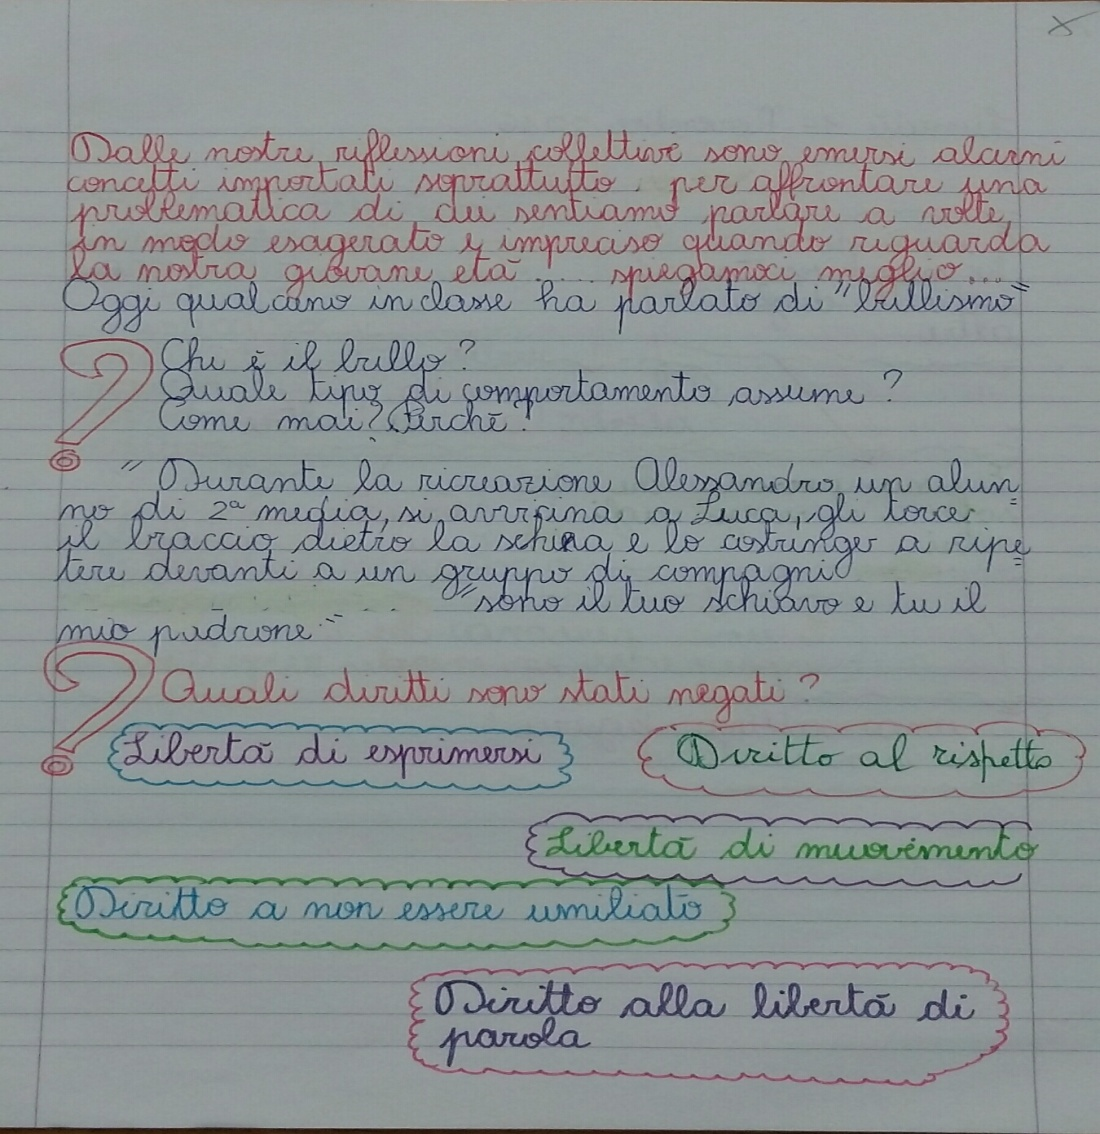 Dalle nostre riflessioni collettive sono emersi alcuni
concetti importati soprattutto per affrontare una
problematica di cui sentiamo parlare a volte
in modo esagerato e impreciso quando riguarda
la nostra giovane età ... spiegamoci meglio...
Oggi qualcuno in classe ha parlato di "bullismo"
Chi è il bullo?
Quale tipo di comportamento assume?
Come mai? Perchè?
"Durante la ricreazione Alessandro, un alun=
no di 2ª media, si avvicina a Luca, gli torce
il braccio dietro la schiena e lo costringe a ripe=
tere devanti a un gruppo di compagni
"sono il tuo schiavo e tu il
mio padrone"
? Quali diritti sono stati negati?
Libertà di esprimersi
Diritto al rispetto
Libertà di muovimento
Diritto a non essere umiliato
Diritto alla libertà di
parola